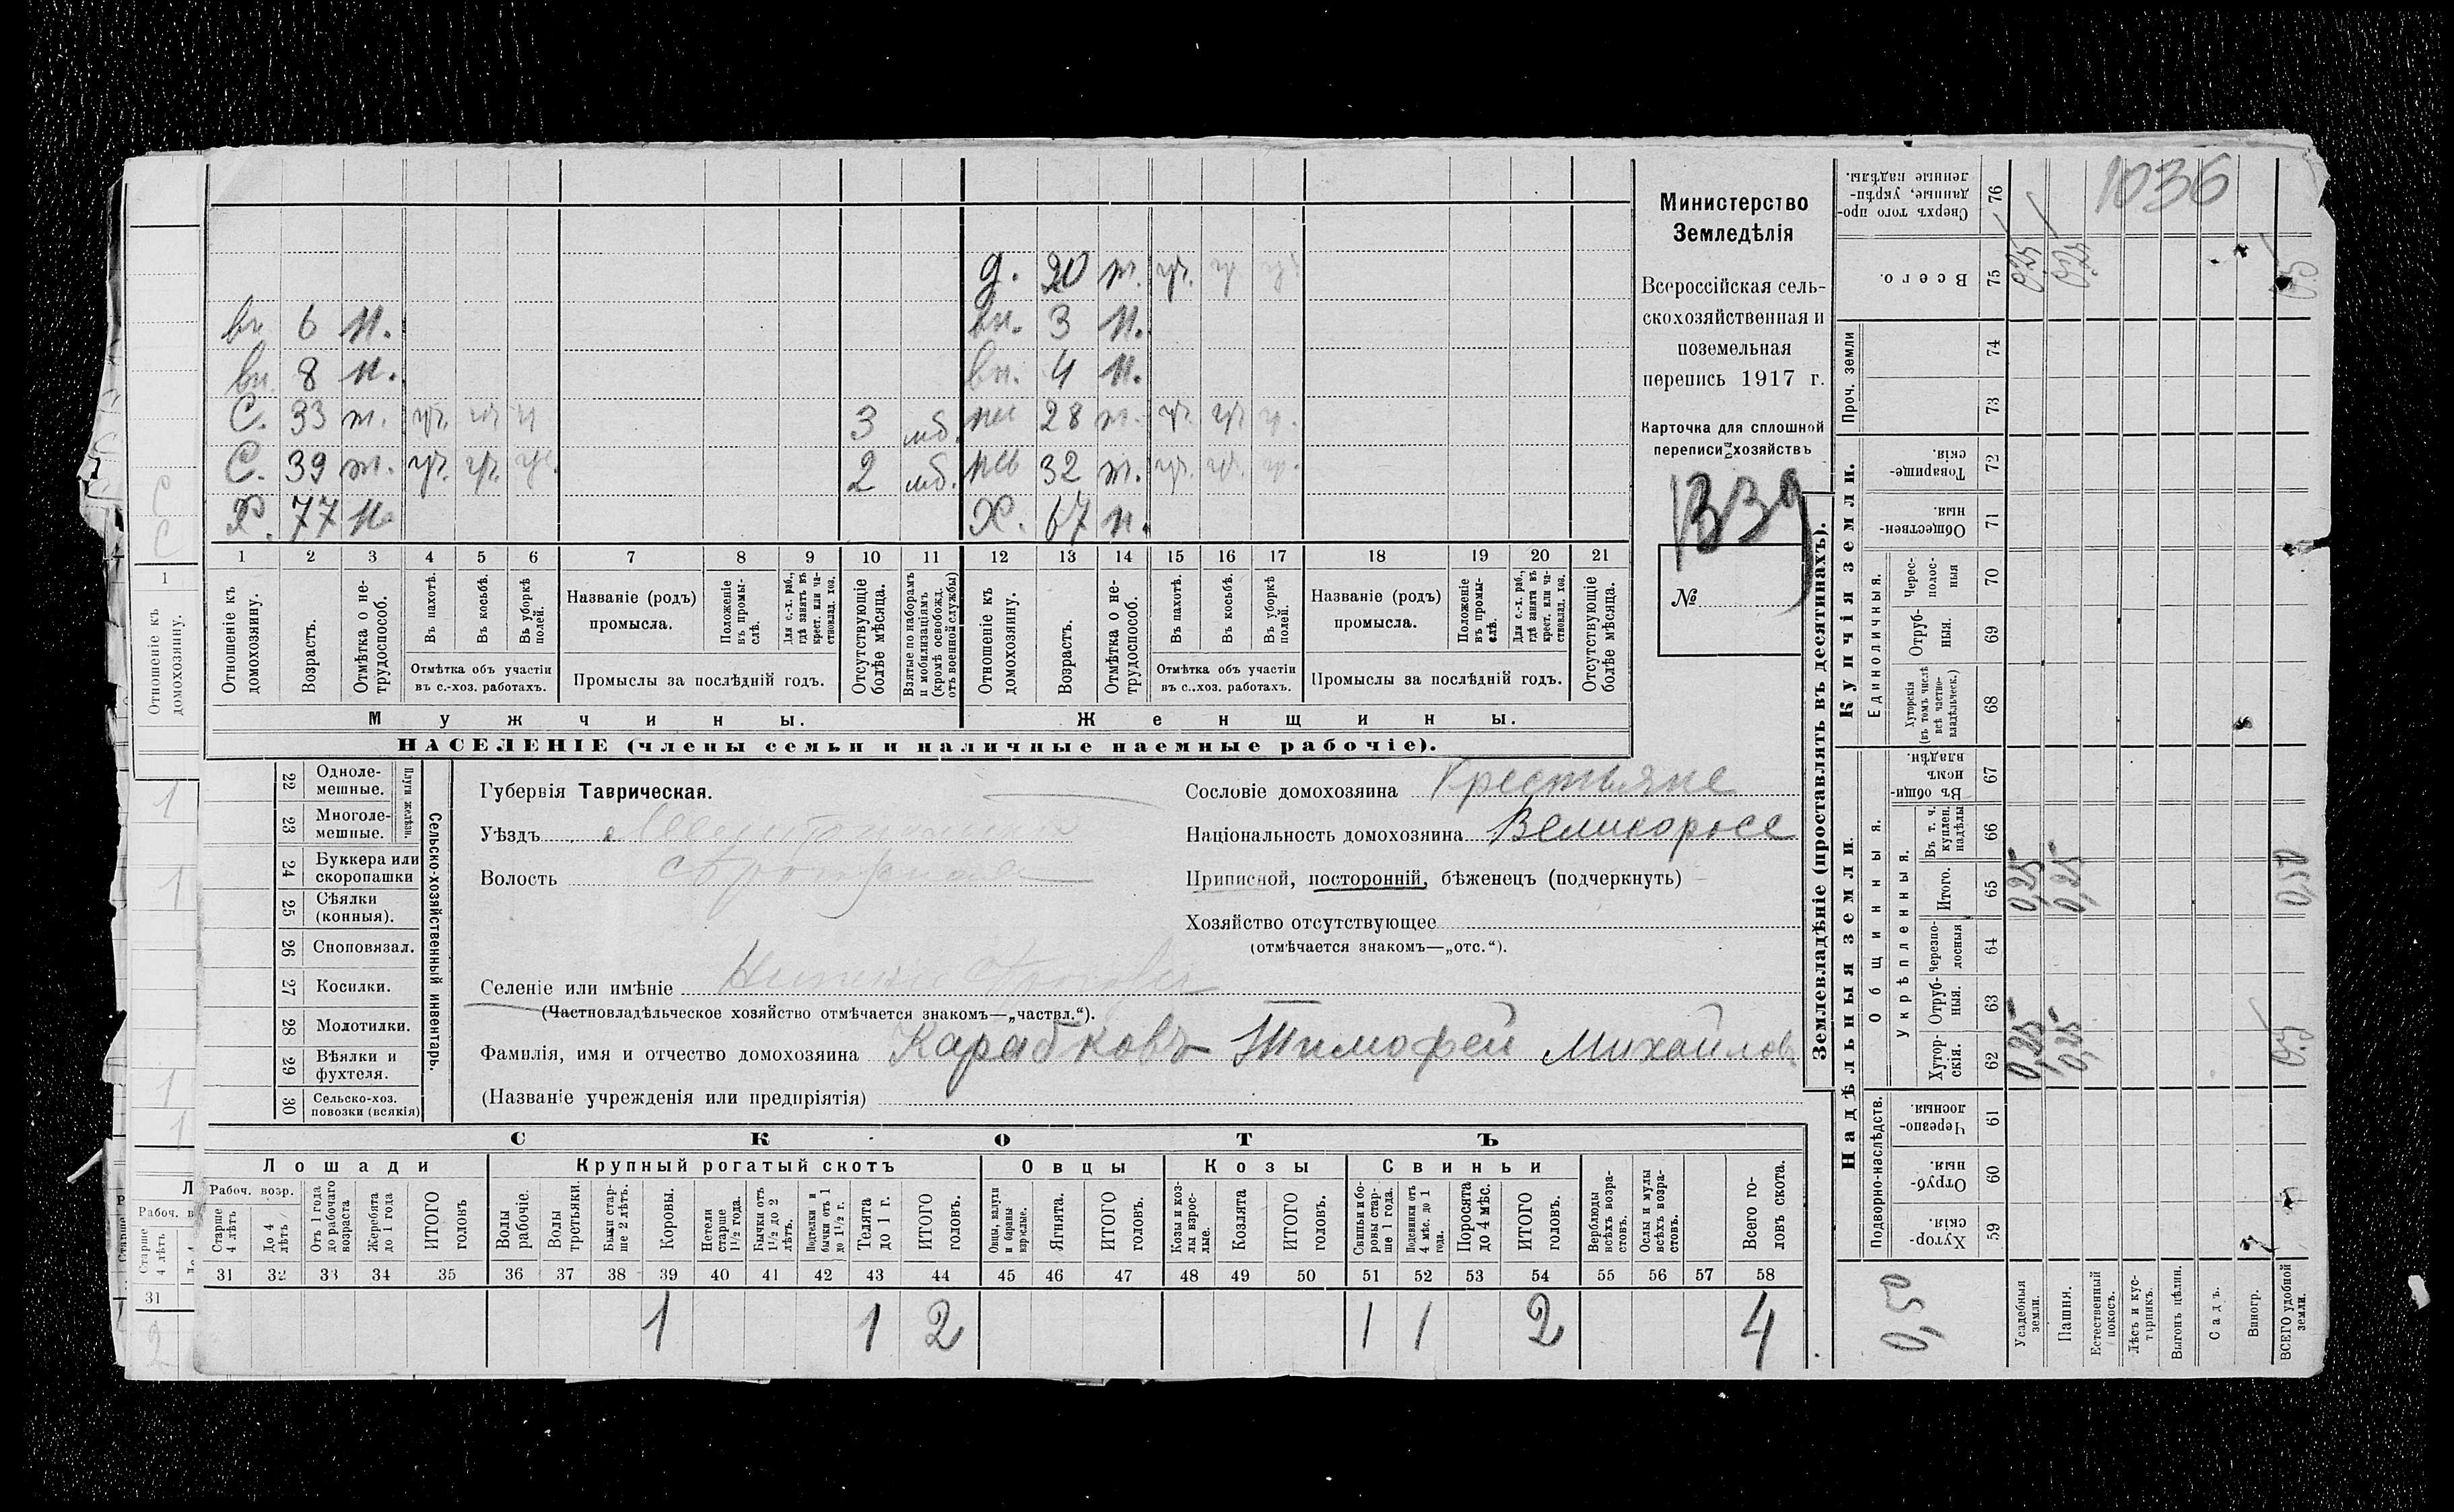 1036
Министерство
Земледѣлія
Всероссійская сель-
скохозяйственная и
поземельная
перепись 1917 г.
Карточка для сплошной
переписи хозяйствъ
1339
№
д. 20 т. чр.
вн. 6 н. вн. 3 н.
вн. 8 н. вн. 4 н.
С. 33 т. 3 мб. 28 т.
С. 39 т. 2 мб. 32 т.
Х. 77 н. Х. 67 н.
1 2 3 4 5 6 7 8 9 10 11 12 13 14 15 16 17 18 19 20 21
Отношеніе къ домохозяину.
Возрастъ.
Отмѣтка о не-трудоспособ.
Въ пахотѣ.
Въ косьбѣ.
Въ уборкѣ полей.
Отмѣтка объ участіи
въ с.-хоз. работахъ.
Названіе (родъ)
промысла.
Положеніе въ промы-слѣ.
Для с.-х. раб., гдѣ занятъ въ крест. или ча-стновлад. хоз.
Промыслы за послѣдній годъ.
Отсутствующіе болѣе мѣсяца.
Взятые по наборамъ и мобилизаціямъ (кромѣ освобожд. отъ военной службы)
Отношеніе къ домохозяину.
Возрастъ.
Отмѣтка о не-трудоспособ.
Въ пахотѣ.
Въ косьбѣ.
Въ уборкѣ полей.
Отмѣтка объ участіи
въ с.-хоз. работахъ.
Названіе (родъ)
промысла.
Положеніе въ промы-слѣ.
Для с.-х. раб., гдѣ занята въ крест. или ча-стновлад. хоз.
Промыслы за послѣдній годъ.
Отсутствующіе болѣе мѣсяца.
Мужчины. Женщины.
НАСЕЛЕНІЕ (члены семьи и наличные наемные рабочіе).
22 Одноле-мешные.
23 Многоле-мешные.
Плуги желѣзн.
24 Буккера или скоропашки
25 Сѣялки (конныя).
26 Сноповязал.
27 Косилки.
28 Молотилки.
29 Вѣялки и фухтеля.
30 Сельско-хоз. повозки (всякія)
Сельско-хозяйственный инвентарь.
Губернія Таврическая.
Уѣздъ
Волость
Селеніе или имѣніе
(Частновладѣльческое хозяйство отмѣчается знакомъ—„частвл.“).
Сословіе домохозяина Крестьяне
Національность домохозяина Великоросс
Приписной, посторонній, бѣженецъ (подчеркнуть)
Хозяйство отсутствующее
(отмѣчается знакомъ—„отс.“).
Фамилія, имя и отчество домохозяина Карабковъ Тимофей Михайлов
(Названіе учрежденія или предпріятія)
СКОТЪ
Лошади Крупный рогатый скотъ Овцы Козы Свиньи
Рабоч. возр.
Старше 4 лѣтъ
До 4 лѣтъ
Отъ 1 года до рабочаго возраста
Жеребята до 1 года
ИТОГО головъ
Волы рабочіе.
Волы третьяки.
Быки стар-ше 2 лѣтъ.
Коровы.
Нетели старше 1½ года.
Бычки отъ 1½ до 2 лѣтъ.
Подтелки и бычки отъ 1 до 1½ г.
Телята до 1 г.
ИТОГО головъ.
Овцы, валухи и бараны взрслые.
Ягнята.
ИТОГО головъ.
Козы и коз-лы взрос-лые.
Козлята
ИТОГО головъ.
Свиньи и бо-ровы стар-ше 1 года.
Подсвинки отъ 4 мѣс. до 1 года.
Поросята до 4 мѣс.
ИТОГО головъ.
Верблюды всѣхъ возра-стовъ.
Ослы и мулы всѣхъ возра-стовъ.
Всего го-ловъ скота.
31 32 33 34 35 36 37 38 39 40 41 42 43 44 45 46 47 48 49 50 51 52 53 54 55 56 57 58
1 1 2 1 1 2 4
Землевладѣніе (проставлять въ десятинахъ).
Надѣльныя земли. Купчія земли.
Подворно-наслѣдств.
Общинныя.
Укрѣпленныя.
Единоличныя.
Проч. земли
Хутор-скія. 59
Отруб-ныя. 60
Черезпо-лосныя. 61
Хутор-скія. 62
Отруб-ныя. 63
Черезпо-лосныя 64
Итого. 65
Въ т. ч. куплен. надѣлы 66
Въ общи-номъ владѣн. 67
Хуторскія (въ томъ числѣ всѣ частно-владѣльческ.) 68
Отруб-ныя. 69
Черес-полос-ныя 70
Обществен-ныя. 71
Товарище-скія. 72
73
74
Всего. 75
Сверхъ того про-данные, укрѣп-ленные надѣлы. 76
Усадебныя земли. 0,25 0,25 0,25
Пашня. 0,25 0,25 0,25
Естественный покосъ.
Лѣсъ и кус-тарникъ.
Выгонъ цѣлин.
Садъ.
Виногр.
ВСЕГО удобной земли. 0,5 0,50 0,5
0,50